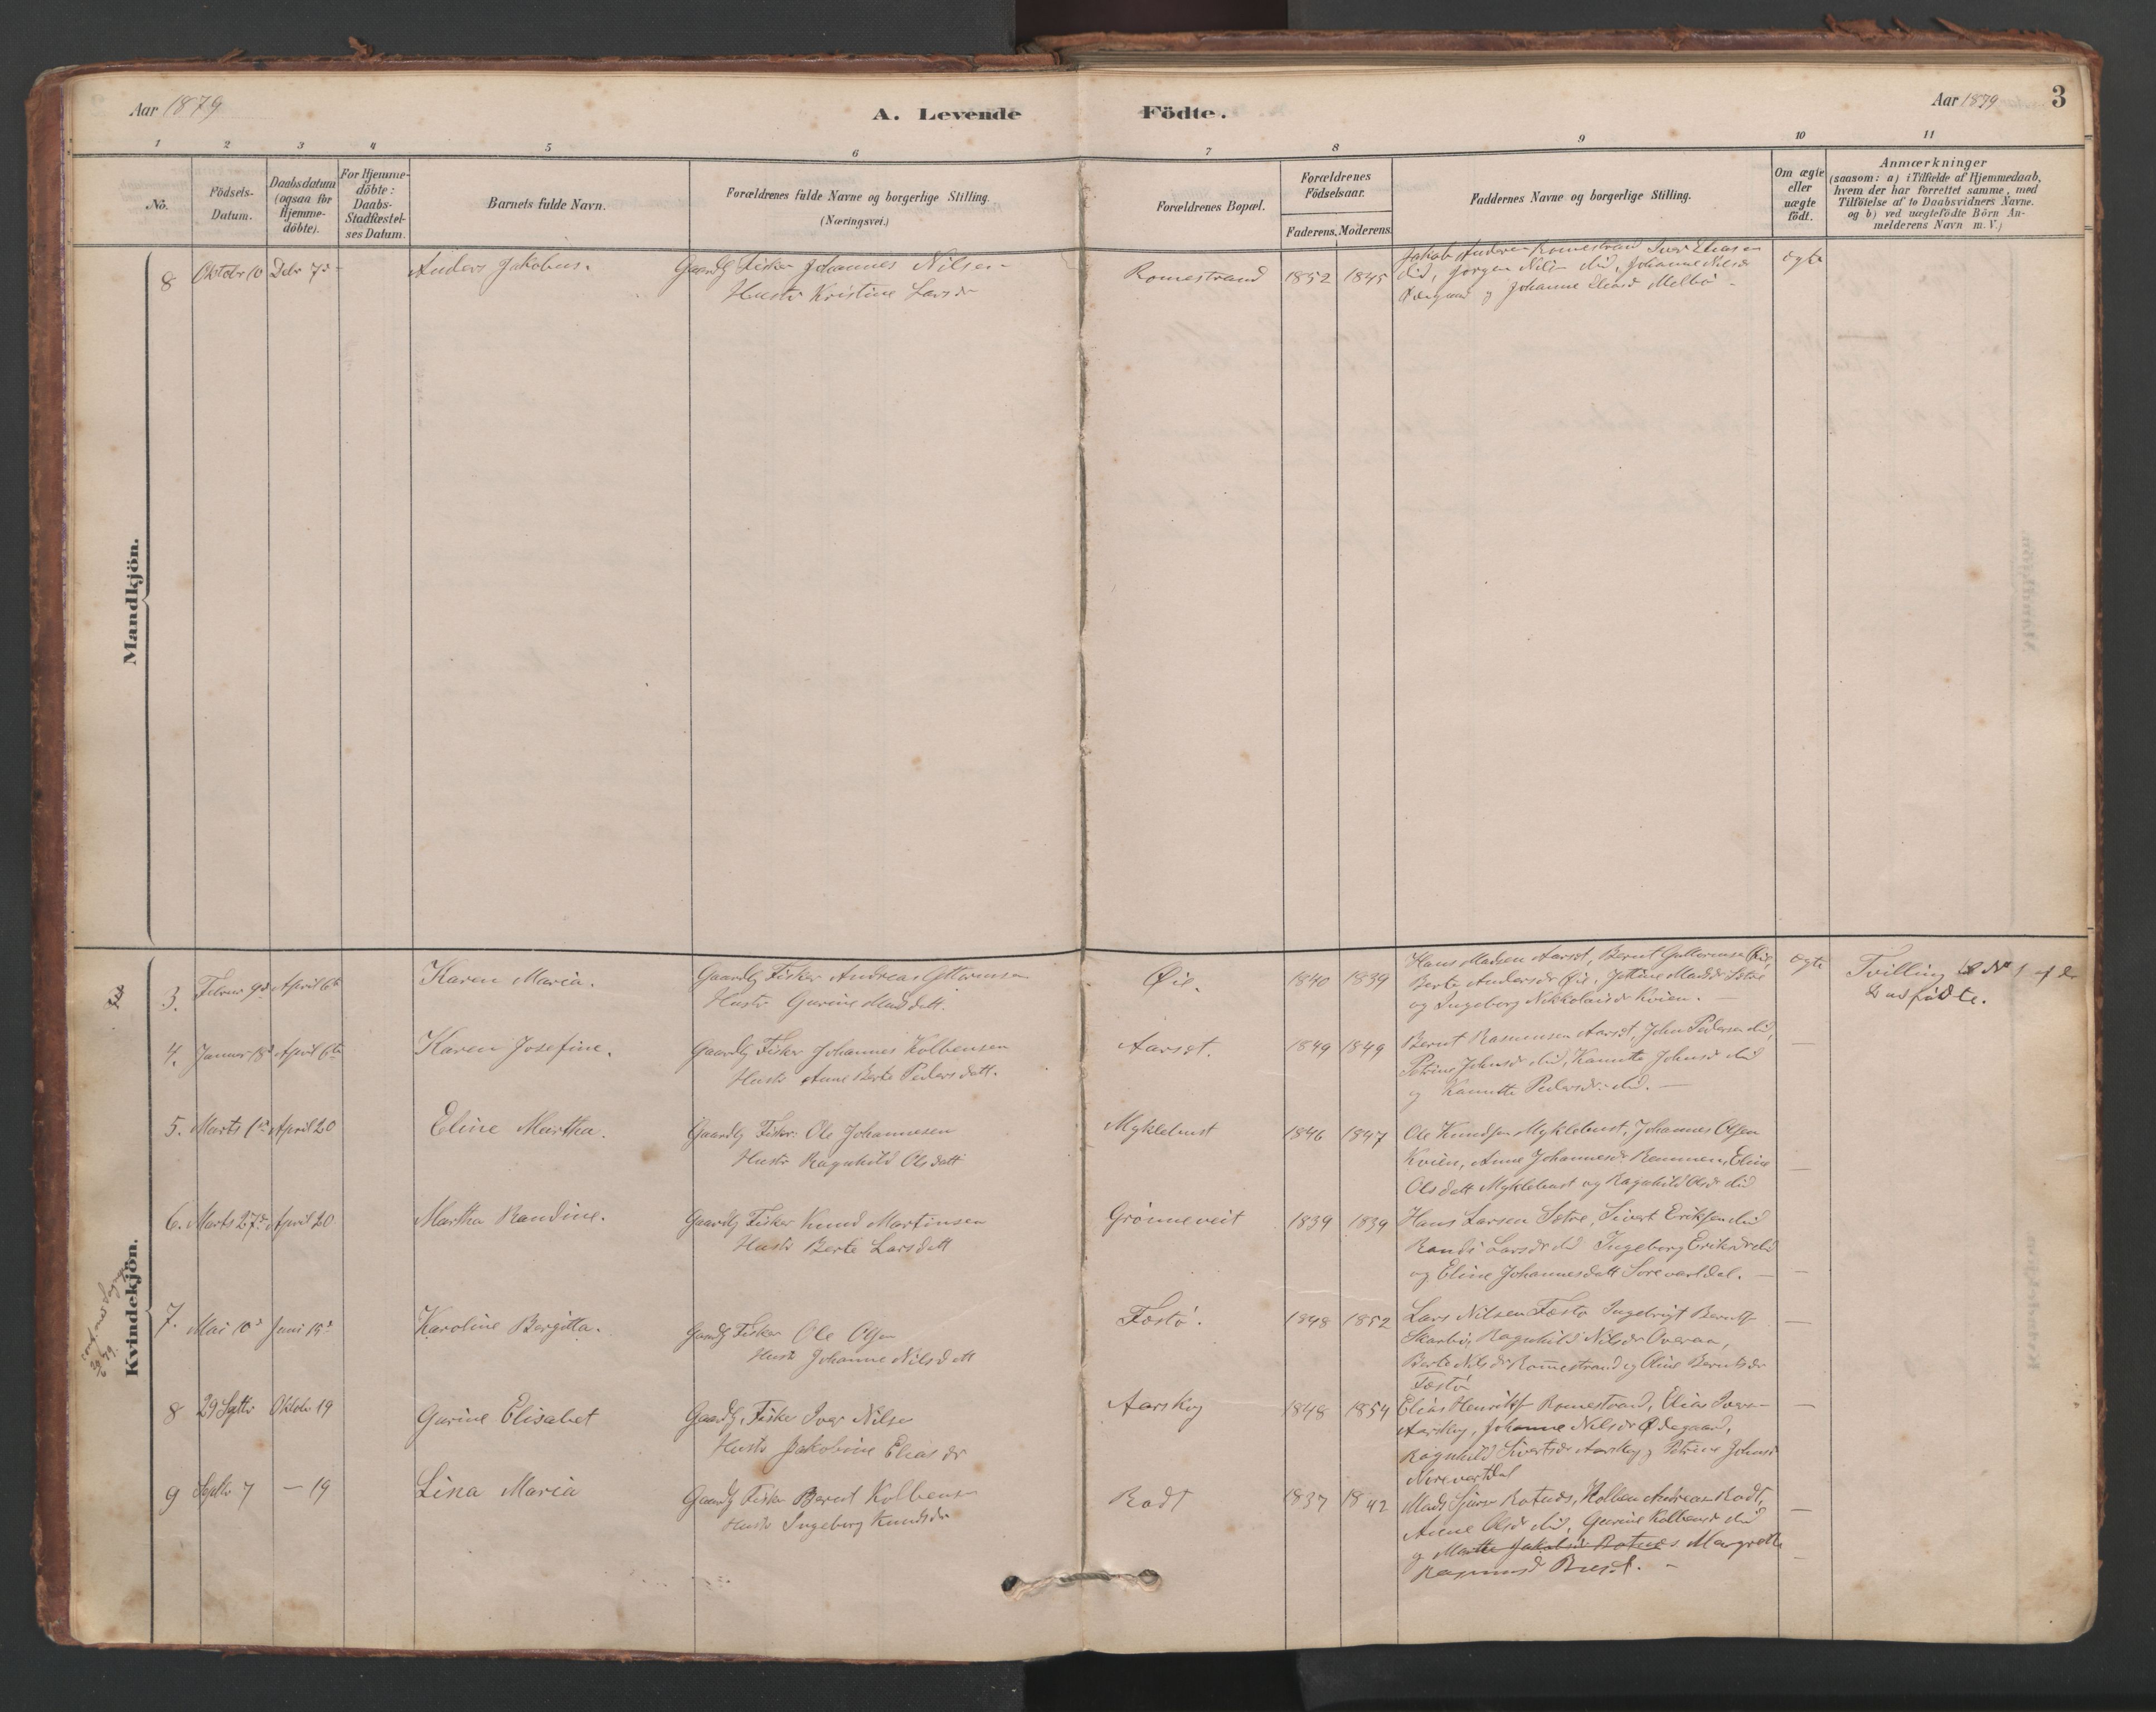 Aar 1879
A. Levende Födte.
Aar 1879
3
1 2 3 4 5 6 7 8 9 10 11
No.
Födsels-
Datum.
Daabsdatum
(ogsaa for
Hjemme-
döbte).
For Hjemme-
döbte:
Daabs-
Stadfæstel-
ses Datum.
Barnets fulde Navn.
Forældrenes fulde Navne og borgerlige Stilling.
(Næringsvei.)
Forældrenes Bopæl.
Forældrenes
Födselsaar.
Faderens. Moderens.
Faddernes Navne og borgerlige Stilling.
Om ægte
eller
uægte
födt.
Anmærkninger
(saasom: a) i Tilfælde af Hjemmedaab,
hvem der har forrettet samme, med
Tilföielse af to Daabsvidners Navne.
og b) ved uægtefödte Börn An-
melderens Navn m. V.)
Mandkjön.
8 Oktobr 10 Debr 7de Anders Jakobus. Gaardb Fisker Johannes Nilsen
Hustr Kristine Larsdr
Romestrand 1852 1845
Jakob Andersen Romestrand Iver Eliasen
did, Jørgen Nils did, Johanne Nilsdr
Ødegaard og Johanne Eliasd Melbø
ægte
Kvindekjön.
3. Februr 9de April 6te Karen Maria. Gaardb Fisker Andreas Guttormsen
Hustr Gurine Madsdatt.
Øie. 1840 1839
Hans Madsen Aarset, Bernt Guttormsen Øie
Berte Andersdr Øie, Jettine Madsdr Sætre
og Ingeborg Nikkolaisdr Kvien.
ægte
Tvilling No 1 af de
fødte.
4. Januar 18de April 6te Karen Josefine. Gaardb Fisker Johannes Kolbensen
Hustr Anne Berte Pedersdatt.
Aarset. 1849 1849
Bernt Rasmussen Aarset, John Pedersen did,
Petrine Johnsdr did, Kanutte Johnsdr did
og Kanutte Pedersdr did.
5. Marts 1ste April 20 Eline Martha. Gaardb Fisker Ole Johannesen
Hustr Ragnhild Olsdatt
Myklebust 1846 1847
Ole Knudsen Myklebust, Johannes Olsen
Kvien, Anne Johannesdr Remmen, Eline
Olsdatt Myklebust og Ragnhild Olsdr did
6. Marts 27de April 20 Martha Randine. Gaardb Fisker Knud Martinsen
Hustr Berte Larsdatt
Grønneveit 1839 1839
Hans Larsen Sætre, Sivert Eriksen did
Randi Larsdr did Ingeborg Eriksdr did
og Eline Johannesdatt Sørevartdal.
7. Mai 10de Juni 15de Karoline Bergitta. Gaardb Fisker Ole Olsen
Hustr Johanne Nilsdatt
Festø. 1848 1852
Lars Nilsen Festø Ingebrigt Berntsen
Skarbø, Ragnhild Nilsdr Overaa,
Berte Nilsdr Romestrand og Oline Berntsdr
Festø
8 29 Septbr Oktobr 19 Gurine Elisabet Gaardb Fisker Iver Nilsen
Hustr Jakobine Eliasdr
Aarskog 1848 1854
Elias Henriks Romestrand, Elias Ivers
Aarskog, Johanne Nilsdr Ødegaard,
Ragnhild Sivertsdr Aarskog og Petrine Johnsd
Norevartdal
9 Septbr 7 — 19 Lina Maria Gaardb Fisker Bernt Kolbensen
Hustr Ingeborg Knudsdr
Rodt 1837 1842
Mads Sjurs Rotnes, Kolben Andreasen Rodt,
Anne Olsdr did, Gurine Kolbensd did
og Marthe Jakobsdr Rotnes Margrethe
Rasmusd